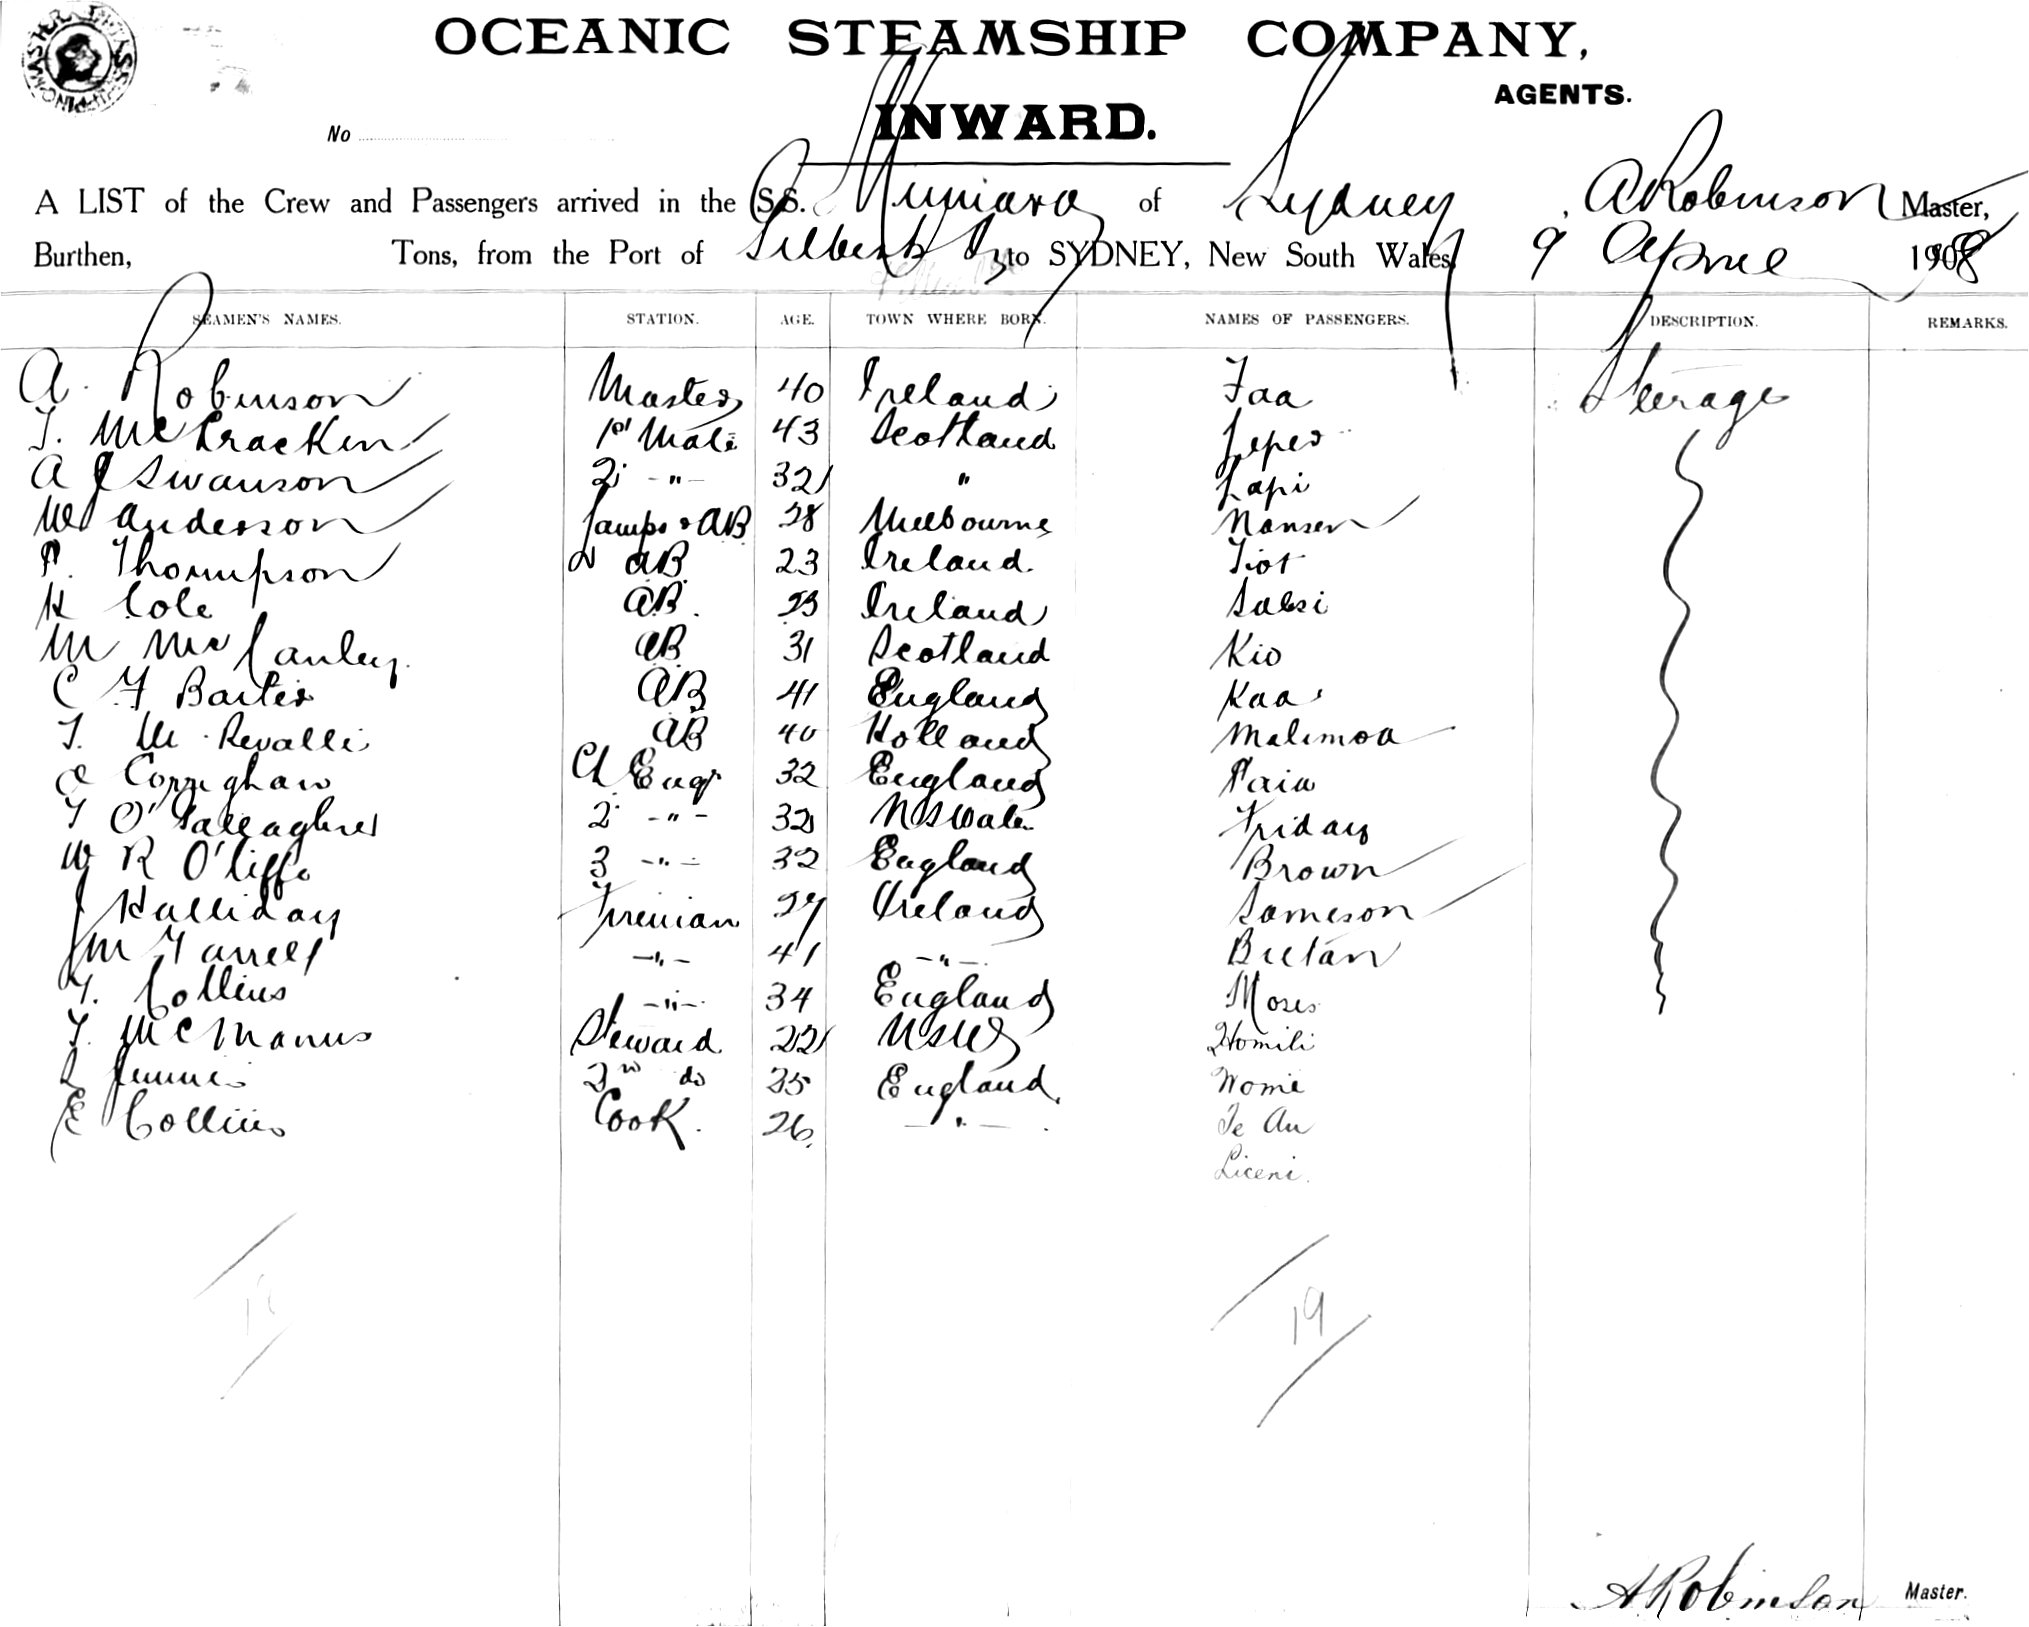 OCEANIC STEAMSHIP COMPANY,
AGENTS.
INWARD.
No
A LIST of the Crew and Passengers arrived in the S.S. Muniara of Sydney, A Robinson Master,
Burthen, Tons, from the Port of Gilbert Is to SYDNEY, New South Wales, 9 April 1908
SEAMEN'S NAMES. STATION. AGE. TOWN WHERE BORN. NAMES OF PASSENGERS. DESCRIPTION. REMARKS.
A. Robinson Master 40 Ireland Faa Steerage
T. McCracken 1st Mate 43 Scotland Leper
A J Swanson 2 -"- 32 " Lapi
W Anderson Lamps & AB 28 Melbourne Nansen
P. Thompson AB 23 Ireland Tiot
H Cole AB. 23 Ireland Salsi
M Mc Canley. AB 31 Scotland Kio
C F Baxter AB 41 England Kaa
T. M. Revalli AB 40 Holland Malimoa
Corrighan Ch Engr 32 England Paia
T O'Gallagher 2 -"- 32 NSWales Friday
W R O'Liffe 3 -"- 32 England Brown
J Halliday Fireman 27 Ireland Jameson
M Farrell -"- 41 -"- Buetan
T. Collins -"- 34 England Moses
T. McManus Steward 22 NSW Homili
2nd do 25 England Wome
E Collins Cook. 26 -"- Te Au
Liceni.
19
A Robinson Master.